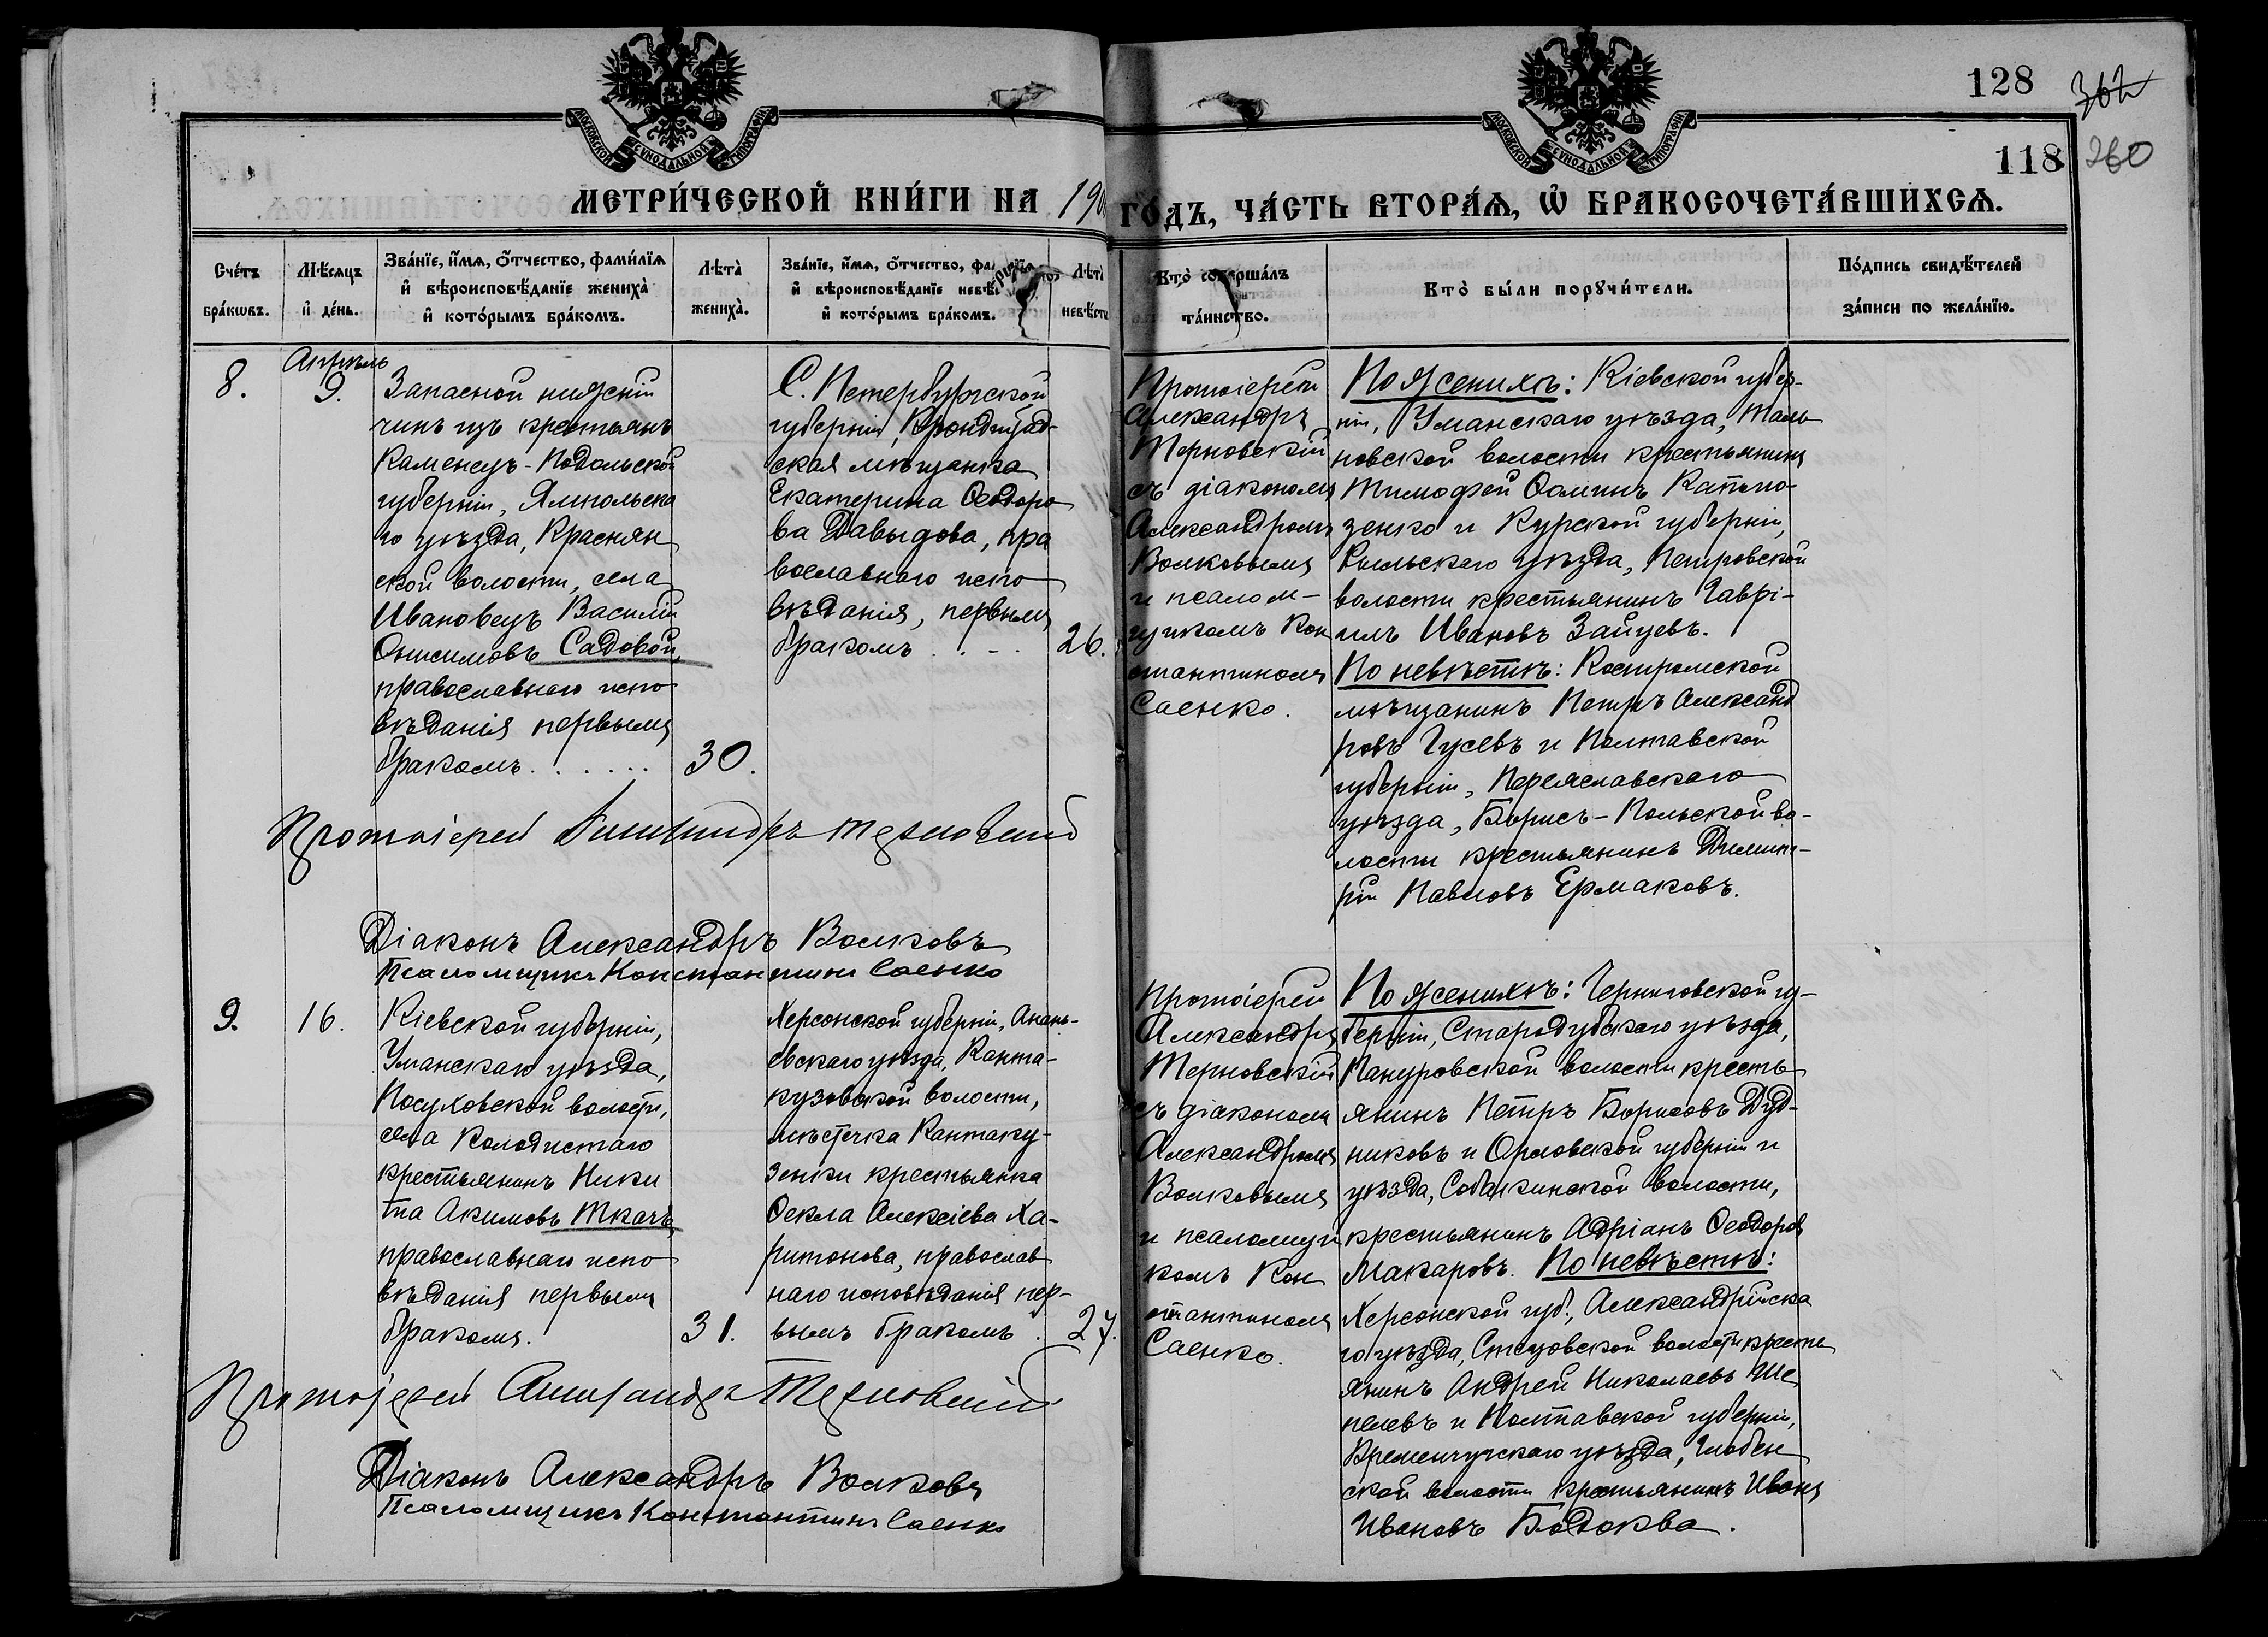 128
362
118
260
МОСКОВСКОЙ СѴНОДАЛЬНОЙ ТИПОГРАФІИ
МОСКОВСКОЙ СѴНОДАЛЬНОЙ ТИПОГРАФІИ
МЕТРИ́ЧЕСКОЙ КНИ́ГИ НА 190
ГО́ДЪ, ЧА́СТЬ ВТОРА́Ѧ, Ѡ БРАКОСОЧЕТА́ВШИХСѦ.
Сче́тъ
бра́кѡвъ.
Мѣ́сѧцъ
и҆ де́нь.
Зва́нїе, и҆́мѧ, ѻ҆́тчество, фами́лїѧ
и҆ вѣроисповѣ́данїе жениха̀
и҆ кото́рымъ бра́комъ.
Лѣта̀
жениха̀.
Зва́нїе, и҆́мѧ, ѻ҆́тчество, фа
и҆ вѣроисповѣ́данїе невѣ́
и҆ кото́рымъ бра́комъ.
Лѣта̀
невѣ́сты
Кто̀ соверша́лъ
та́инство.
Кто̀ бы́ли порꙋчи́тели.
По́дпись свидѣ́телей
за́писи по жела́нїю.
8.
Апрѣль
9.
Запасной нижній
чинъ изъ крестьянъ
Каменецъ-Подольской
губерніи, Ямпольска
го уѣзда, Краснян
ской волости, села
Ивановецъ Василій
Онисимовъ Садовой,
православнаго испо
вѣданія первымъ
бракомъ. . . . . . .
30.
С. Петербургской
губерніи, Кронштад-
ская мѣщанка
Екатерина Ѳеодоро
ва Давыдова, пра
вославнаго испо
вѣданія, первымъ
бракомъ . . - .
26.
Протоіерей
Александръ
Терновскій
съ діакономъ
Александромъ
Волковымъ
и псалом-
щикомъ Кон
стантиномъ
Саенко.
По женихѣ: Кіевской губер-
ніи, Уманскаго уѣзда, Таль
новской волости крестьянинъ
Тимофей Ѳоминъ
зенко и Курской губерніи,
Рыльскаго уѣзда, Петровской
волости крестьянинъ Гаврі-
илъ Ивановъ Зайцевъ.
По невѣстѣ: Костромской
мѣщанинъ Петръ Александ
ровъ Гусевъ и Полтавской
губерніи, Переяславскаго
уѣзда, Борисъ-Польской во-
лости крестьянинъ Димит-
рій Павловъ Ермаковъ.
Протоіерей Александръ Терновскій
Діаконъ Александръ Волковъ
Псаломщикъ Константинъ Саенко
9.
16.
Кіевской губерніи,
Уманскаго уѣзда,
Посуховской волости,
села Колодистаго
крестьянинъ Ники
та Акимовъ Ткачъ,
православнаго испо
вѣданія первымъ
бракомъ.
31.
Херсонской губерніи, Анань-
евскаго уѣзда, Канта-
кузовской волости,
мѣстечка Кантаку-
зенки крестьянка
Ѳекла Алексіева Ха-
ритонова, православ
наго исповѣданія пер-
вымъ бракомъ .
27.
Протоіерей
Александръ
Терновскій
съ діакономъ
Александромъ
Волковымъ
и псаломщи
комъ Кон
стантиномъ
Саенко.
По женихѣ: Черниговской гу-
берніи, Стародубскаго уѣзда,
Понуровской волости кресть
янинъ Петръ Борисовъ Дуд-
никовъ и Орловской губерніи и
уѣзда, Собакинской волости,
крестьянинъ Адріанъ Ѳеодоровъ
Макаровъ. По невѣстѣ:
Херсонской губ., Александрійска
го уѣзда, волости кресть
янинъ Андрей Николаевъ Ше
пелевъ и Полтавской губерніи,
Кременчугскаго уѣзда, Глобин
ской волости крестьянинъ Иванъ
Ивановъ Бодаква.
Протоіерей Александръ Терновскій
Діаконъ Александръ Волковъ
Псаломщикъ Константинъ Саенко